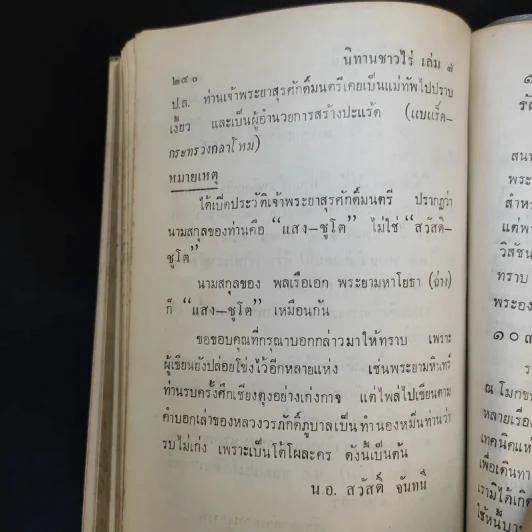 นิทานชาวไร่ เล่ม ๗
๒๔๐
ป.ล. ท่านเจ้าพระยาสุรศักดิ์มนตรีเคยเป็นแม่ทัพไปปราบ
เงี้ยว และเป็นผู้อำนวยการสร้างปะแร้ด (แบแร็ค–
กระทรวงกลาโหม)
หมายเหตุ
ได้เปิดประวัติเจ้าพระยาสุรศักดิ์มนตรี ปรากฏว่า
นามสกุลของท่านคือ “แสง–ชูโต” ไม่ใช่ “สวัสดิ–
ชูโต”
นามสกุลของ พลเรือเอก พระยามหาโยธา (ฉ่าง)
ก็ “แสง–ชูโต” เหมือนกัน
ขอขอบคุณที่กรุณาบอกกล่าวมาให้ทราบ เพราะ
ผู้เขียนยังปล่อยโข่งไว้อีกหลายแห่ง เช่นพระยามหินทร์
ท่านรบครั้งศึกเชียงตุงอย่างเก่งกาจ แต่ไพล่ไปเขียนตาม
คำบอกเล่าของหลวงวรภักดิ์ภูบาลเป็นทำนองหมิ่นท่านว่า
รบไม่เก่ง เพราะเป็นโต้โผละคร ดังนี้เป็นต้น
น.อ. สวัสดิ์ จันทนี
๑
รั
สนท
พระ
สำห
แต่พ
วิสัชน
ทราบ
พระอง
๑๐๓
ร
ณ โมกข
หลายเรื่อง
เทคนิคแห
เพื่อเดินทา
เรามิได้เกิด
ใช้หนี้บา